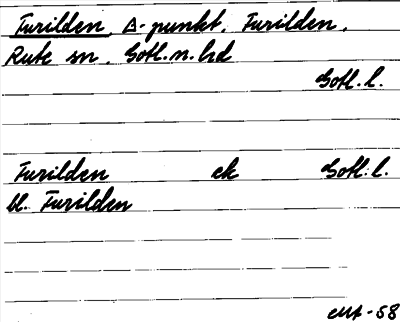 Furilden, Δ-punkt, Furilden,
Rute sn, Gotl. n. hd
Gotl. l.
Furilden ek Gotl. l.
bl. Furilden
-58